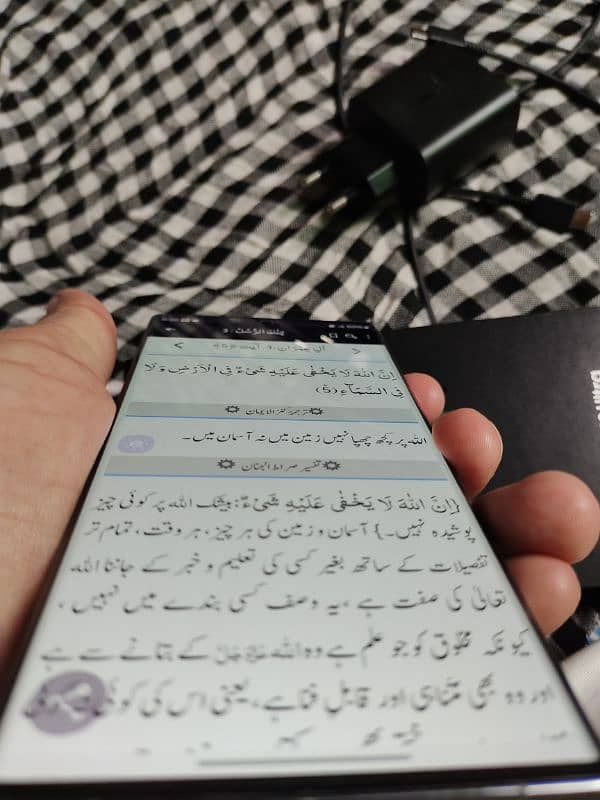 آل عمران
اِنَّ اللّٰهَ لَا یَخْفٰى عَلَیْهِ شَیْءٌ فِی الْاَرْضِ وَ لَا
فِی السَّمَآءِ(5)
ترجمۂ کنزالایمان
اللہ پر کچھ چھپا نہیں زمین میں نہ آسمان میں۔
تفسیر صراط الجنان
{اِنَّ اللّٰهَ لَا یَخْفٰى عَلَیْهِ شَیْءٌ: بیشک اللہ پر کوئی چیز
پوشیدہ نہیں۔} آسمان و زمین کی ہر چیز، ہر وقت، تمام تر
تفصیلات کے ساتھ بغیر کسی کی تعلیم و خبر کے جاننا اللہ
تعالیٰ کی صفت ہے ،یہ وصف کسی بندے میں نہیں ،
کیونکہ مخلوق کو جو علم ہے وہ اللہ عَزَّوَجَلَّ کے بتانے سے ہے
اور وہ بھی متناہی اور قابلِ فنا ہے، یعنی اس کی کوئی